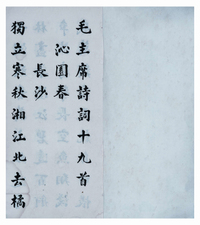 毛主席詩詞十九首
沁園春
長沙
獨立寒秋湘江北去橘